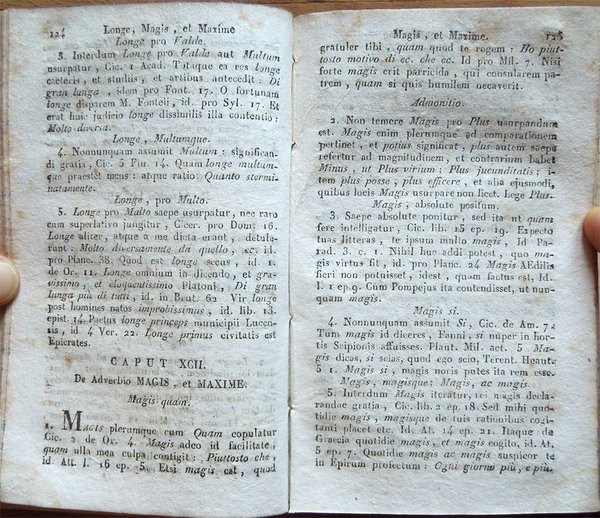 124 Longe, Magis, et Maxime
Longe pro Valde.
3. Interdum Longe pro Valde aut Multum
usurpatur, Cic. 1 Acad. Titaque ea res longe
caeteris, et studiis, et artibus antecedit: Di
gran lunga, idem pro Font. 17. O fortunam
longe disparem M. Fonteii, id. pro Syl. 17. Et
erat huic judicio longe dissimilis illa contentio:
Molto diversa.
Longe, Multumque.
4. Nonnunquam assumit Multum: significan-
di gratia, Cic. 5 Fin. 14. Quam longe multum-
que praestet mens: atque ratio: Quanto stermi-
natamente.
Longe, pro Multo.
5. Longe pro Multo saepe usurpatur, nec raro
cum superlativo jungitur, Cicer. pro Dom; 16.
Longe aliter, atque a me dicta erant, detule-
runt. Molto diversamente da quello, ec: id.
pro Planc. 38. Quod est longe secus: id. 1.
de Or. 11. Longe omnium in dicendo, et gra-
vissimo, et eloquentissimo Platoni, Di gran
lunga più di tutti, id. in Brut. 62 Vir longe
post homines natos improbissimus, id. lib. 13.
epist. 14 Paetus longe princeps municipii Lucen-
sis, id 4 Ver. 22. Longe primus civitatis est
Epicrates.
CAPUT XCII.
De Adverbio MAGIS, et MAXIME.
Magis quam.
1. MAGIS plerumque cum Quam copulatur
Cic. 2 de Or. 4. Magis adeo id facilitate,
quam ulla mea culpa contigit: Piuttosto che,
id. Att. l. 16 ep. 5. Etsi magis est, quod
Magis, et Maxime. 125
gratuler tibi, quam quod te rogem: Ho piut-
tosto motivo di ec. che ec. Id pro Mil. 7. Nisi
forte magis erit parricida, qui consularem pa-
trem, quam si quis humilem necaverit.
Admonitio.
2. Non temere Magis pro Plus usurpandum
est. Magis enim plerumque ad comparationem
pertinet, et potius significat, plus autem saepe
refertur ad magnitudinem, et contrarium habet
Minus, ut Plus virium; Plus jucunditatis; i-
tem plus posse, plus efficere, et alia ejusmodi,
quibus locis Magis usurpare non licet. Lege Plus.
Magis, absolute positum.
3. Saepe absolute ponitur, sed ita ut quam
fere intelligatur, Cic. lib. 15 ep. 19. Expecto
tuas litteras, te ipsum multo magis. Id Pa-
rad. 3. c. 1. Nihil huc addi potest, quo ma-
gis virtus fit, id. pro Planc. 24 Magis AEdilis
fieri non potuisset, idest, quam factus est, Id.
l. 1 ep 9. Cum Pompejus ita contendisset, ut nun-
quam magis.
Magis si.
4. Nonnunquam assumit Si, Cic. de Am. 7.
Tum magis id diceres, Fanni, si nuper in hor-
tis Scipionis affuisses. Plaut. Mil. act. 5 Ma-
gis dicas, si scias, quod ego scio, Terent. Heaut.
5 1. Magis si, magis noris putes ita rem esse.
Magis, magisque: Magis, ac magis.
5. Interdum Magis iteratur, rei magis decla-
randae gratia, Cic. lib. 2 ep. 18. Sed mihi quo-
tidie magis, magisque de tuis rationibus cogi-
tanti placet etc. Id. At. 14 ep. 21. Itaque de
Graecia quotidie magis, et magis cogito, id. At.
5 ep. 7. Quotidie magis ac magis suspicor te
in Epirum profectum: Ogni giorno più, e più.